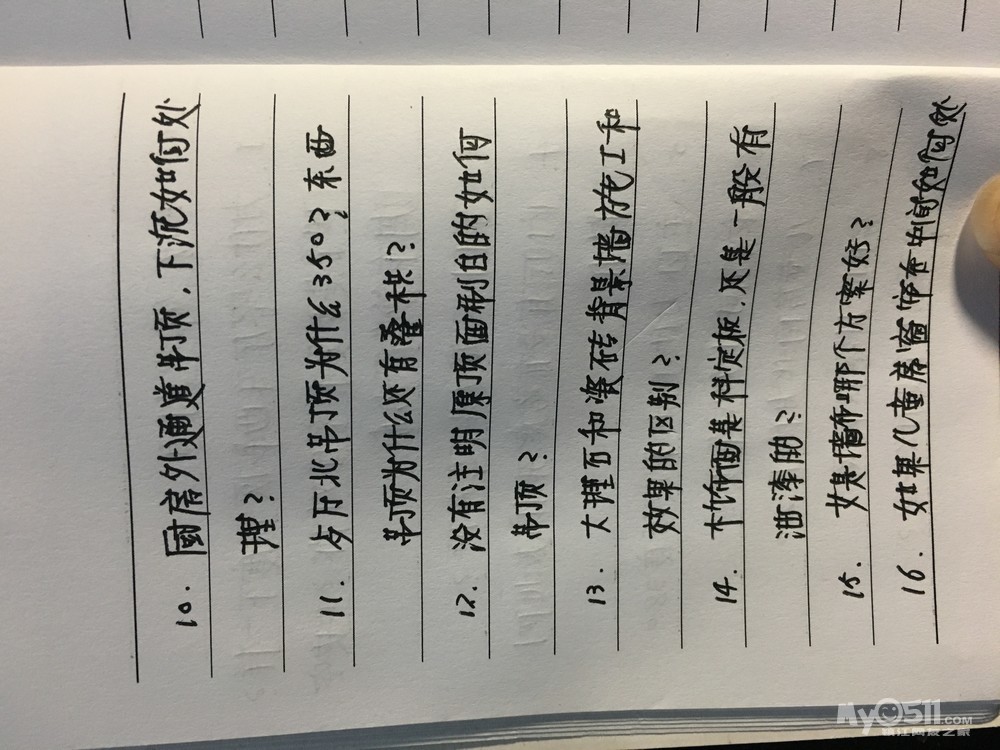 10. 厨房外通道吊顶，下沉如何处
理？
11. 歺厅北吊顶为什么350？东西
吊顶为什么还有叠积？
12. 没有注明原顶面制白的如何
吊顶？
13. 大理石和瓷砖背景墙方化工和
效果的区别？
14. 木饰面是科定板，还是一般有
油漆的？
15. 女具墙布哪个方案好？
16. 如果儿童房窗帘在中间如何处
My0511.COM